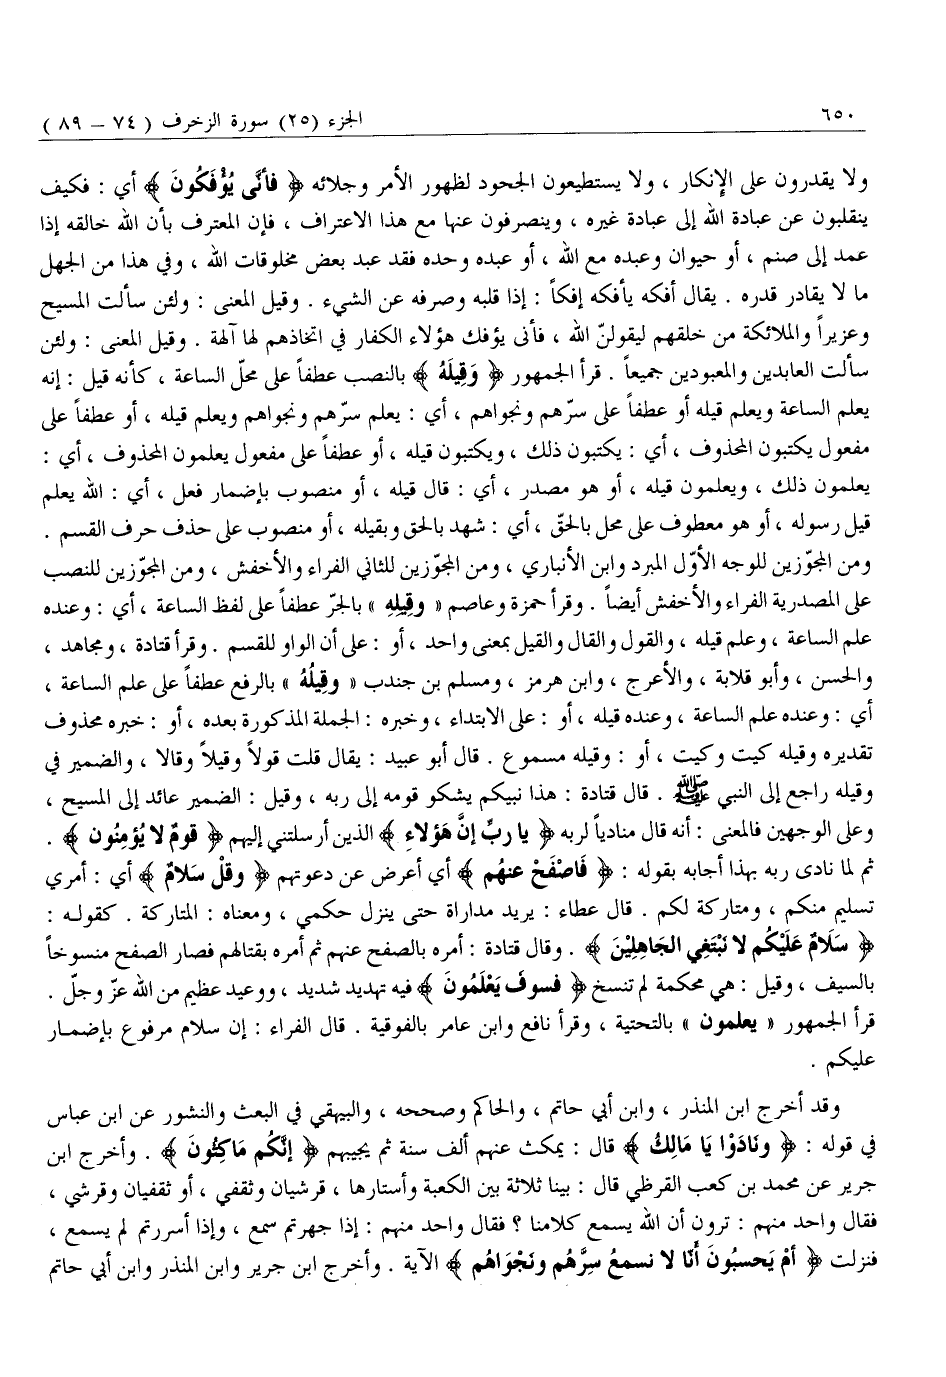 ٦٥٠
الجزء (٢٥) سورة الزخرف ( ٧٤ – ٨٩ )
ولا يقدرون على الإنكار ، ولا يستطيعون الجحود لظهور الأمر وجلائه ﴿ فأنَّى يُؤْفَكُونَ ﴾ أي : فكيف
ينقلبون عن عبادة الله إلى عبادة غيره ، وينصرفون عنها مع هذا الاعتراف ، فإن المعترف بأن الله خالقه إذا
عمد إلى صنم ، أو حيوان وعبده مع الله ، أو عبده وحده فقد عبد بعض مخلوقات الله ، وفي هذا من الجهل
ما لا يقادر قدره . يقال أفكه يأفكه إفكاً : إذا قلبه وصرفه عن الشيء . وقيل المعنى : ولئن سألت المسيح
وعزيراً والملائكة من خلقهم ليقولنّ الله ، فأنى يؤفك هؤلاء الكفار في اتخاذهم لها آلهة . وقيل المعنى : ولئن
سألت العابدين والمعبودين جميعاً . قرأ الجمهور ﴿ وَقِيلَهُ ﴾ بالنصب عطفاً على محلّ الساعة ، كأنه قيل : إنه
يعلم الساعة ويعلم قيله أو عطفاً على سرّهم ونجواهم ، أي : يعلم سرّهم ونجواهم ويعلم قيله ، أو عطفاً على
مفعول يكتبون المحذوف ، أي : يكتبون ذلك ، ويكتبون قيله ، أو عطفاً على مفعول يعلمون المحذوف ، أي :
يعلمون ذلك ، ويعلمون قيله ، أو هو مصدر ، أي : قال قيله ، أو منصوب بإضمار فعل ، أي : الله يعلم
قيل رسوله ، أو هو معطوف على محل بالحقّ ، أي : شهد بالحق وبقيله ، أو منصوب على حذف حرف القسم .
ومن المجوّزين للوجه الأوّل المبرد وابن الأنباري ، ومن المجوّزين للثاني الفراء والأخفش ، ومن المجوّزين للنصب
على المصدرية الفراء والأخفش أيضاً . وقرأ حمزة وعاصم « وقِيلِهِ » بالجرّ عطفاً على لفظ الساعة ، أي : وعنده
علم الساعة ، وعلم قيله ، والقول والقال والقيل بمعنى واحد ، أو : على أن الواو للقسم . وقرأ قتادة ، ومجاهد ،
والحسن ، وأبو قلابة ، والأعرج ، وابن هرمز ، ومسلم بن جندب « وقِيلُهُ » بالرفع عطفاً على علم الساعة ،
أي : وعنده علم الساعة ، وعنده قيله ، أو : على الابتداء ، وخبره : الجملة المذكورة بعده ، أو : خبره محذوف
تقديره وقيله كيت وكيت ، أو : وقيله مسموع . قال أبو عبيد : يقال قلت قولاً وقيلاً وقالا ، والضمير في
وقيله راجع إلى النبي ﷺ . قال قتادة : هذا نبيكم يشكو قومه إلى ربه ، وقيل : الضمير عائد إلى المسيح ،
وعلى الوجهين فالمعنى : أنه قال منادياً لربه ﴿ يا ربِّ إنَّ هَؤلاءِ ﴾ الذين أرسلتني إليهم ﴿ قومٌ لا يُؤمِنُون ﴾ .
ثم لما نادى ربه بهذا أجابه بقوله : ﴿ فَاصْفَحْ عنهُم ﴾ أي أعرض عن دعوتهم ﴿ وقلْ سَلامٌ ﴾ أي : أمري
تسليم منكم ، ومتاركة لكم . قال عطاء : يريد مداراة حتى ينزل حكمي ، ومعناه : المتاركة . كقولـه :
﴿ سَلامٌ عَلَيْكُم لا نَبْتَغِي الجَاهِلِيْنَ ﴾ . وقال قتادة : أمره بالصفح عنهم ثم أمره بقتالهم فصار الصفح منسوخاً
بالسيف ، وقيل : هي محكمة لم تنسخ ﴿ فسوفَ يَعْلَمُونَ ﴾ فيه تهديد شديد ، ووعيد عظيم من الله عزّ وجلّ .
قرأ الجمهور « يعلمون » بالتحتية ، وقرأ نافع وابن عامر بالفوقية . قال الفراء : إن سلام مرفوع بإضمـار
عليكم .
وقد أخرج ابن المنذر ، وابن أبي حاتم ، والحاكم وصححه ، والبيهقي في البعث والنشور عن ابن عباس
في قوله : ﴿ ونَادَوْا يَا مَالِكُ ﴾ قال : يمكث عنهم ألف سنة ثم يجيبهم ﴿ إنَّكُم مَاكِثُونَ ﴾ . وأخرج ابن
جرير عن محمد بن كعب القرظي قال : بينا ثلاثة بين الكعبة وأستارها ، قرشيان وثقفي ، أو ثقفيان وقرشي ،
فقال واحد منهم : ترون أن الله يسمع كلامنا ؟ فقال واحد منهم : إذا جهرتم سمع ، وإذا أسررتم لم يسمع ،
فنزلت ﴿ أمْ يَحسبُونَ أَنَّا لا نسمعُ سِرَّهُم ونَجْوَاهُم ﴾ الآية . وأخرج ابن جرير وابن المنذر وابن أبي حاتم